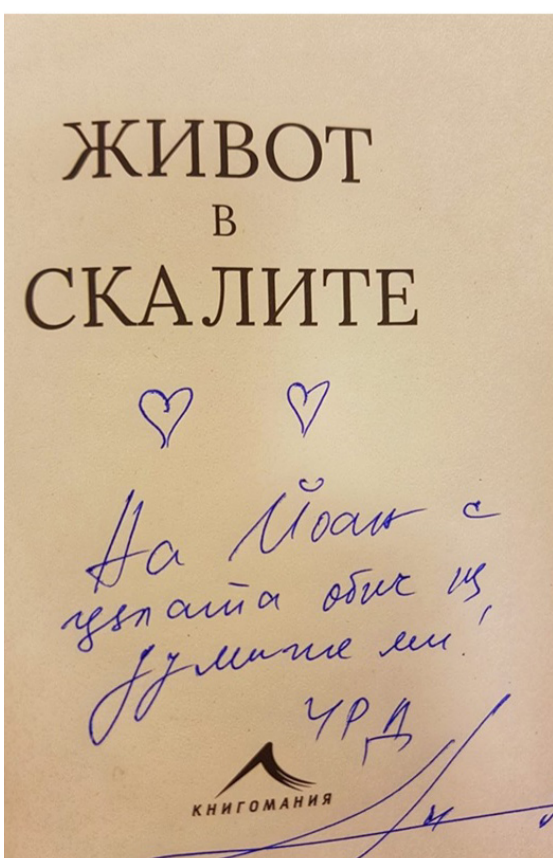 ЖИВОТ
В
СКАЛИТЕ
На Йоан с
цялата обич
думите ми!
ЧРД
КНИГОМАНИЯ